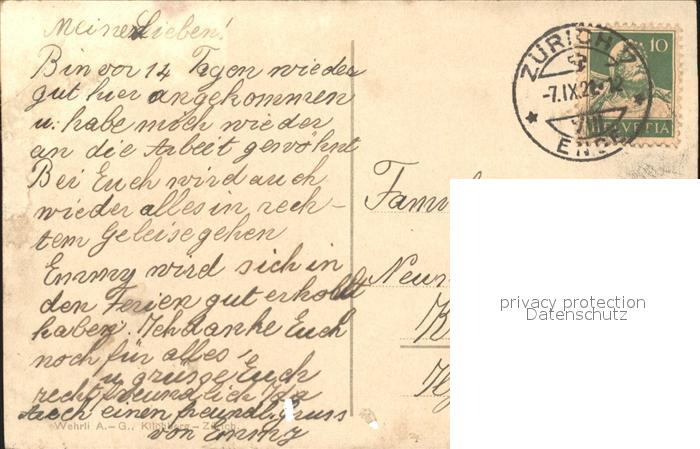 Meine Lieben!
Bin vor 14 Tagen wieder
gut hier angekommen
u. habe mich wieder
an die Arbeit gewöhnt
Bei Euch wird auch
wieder alles in rech-
tem Geleise gehen
Emmy wird sich in
den Ferien gut erholt
haben. Ich danke Euch
noch für alles,
u grüsse Euch
recht freundlich Ida
Auch einen freundl. Gruss
von Emmy
Wehrli A.-G., Kilchberg - Zürich
ZÜRICH 7
-7.IX.21
VIII
ENGE
10
HELVETIA
Fam
Neu
K
privacy protection
Datenschutz